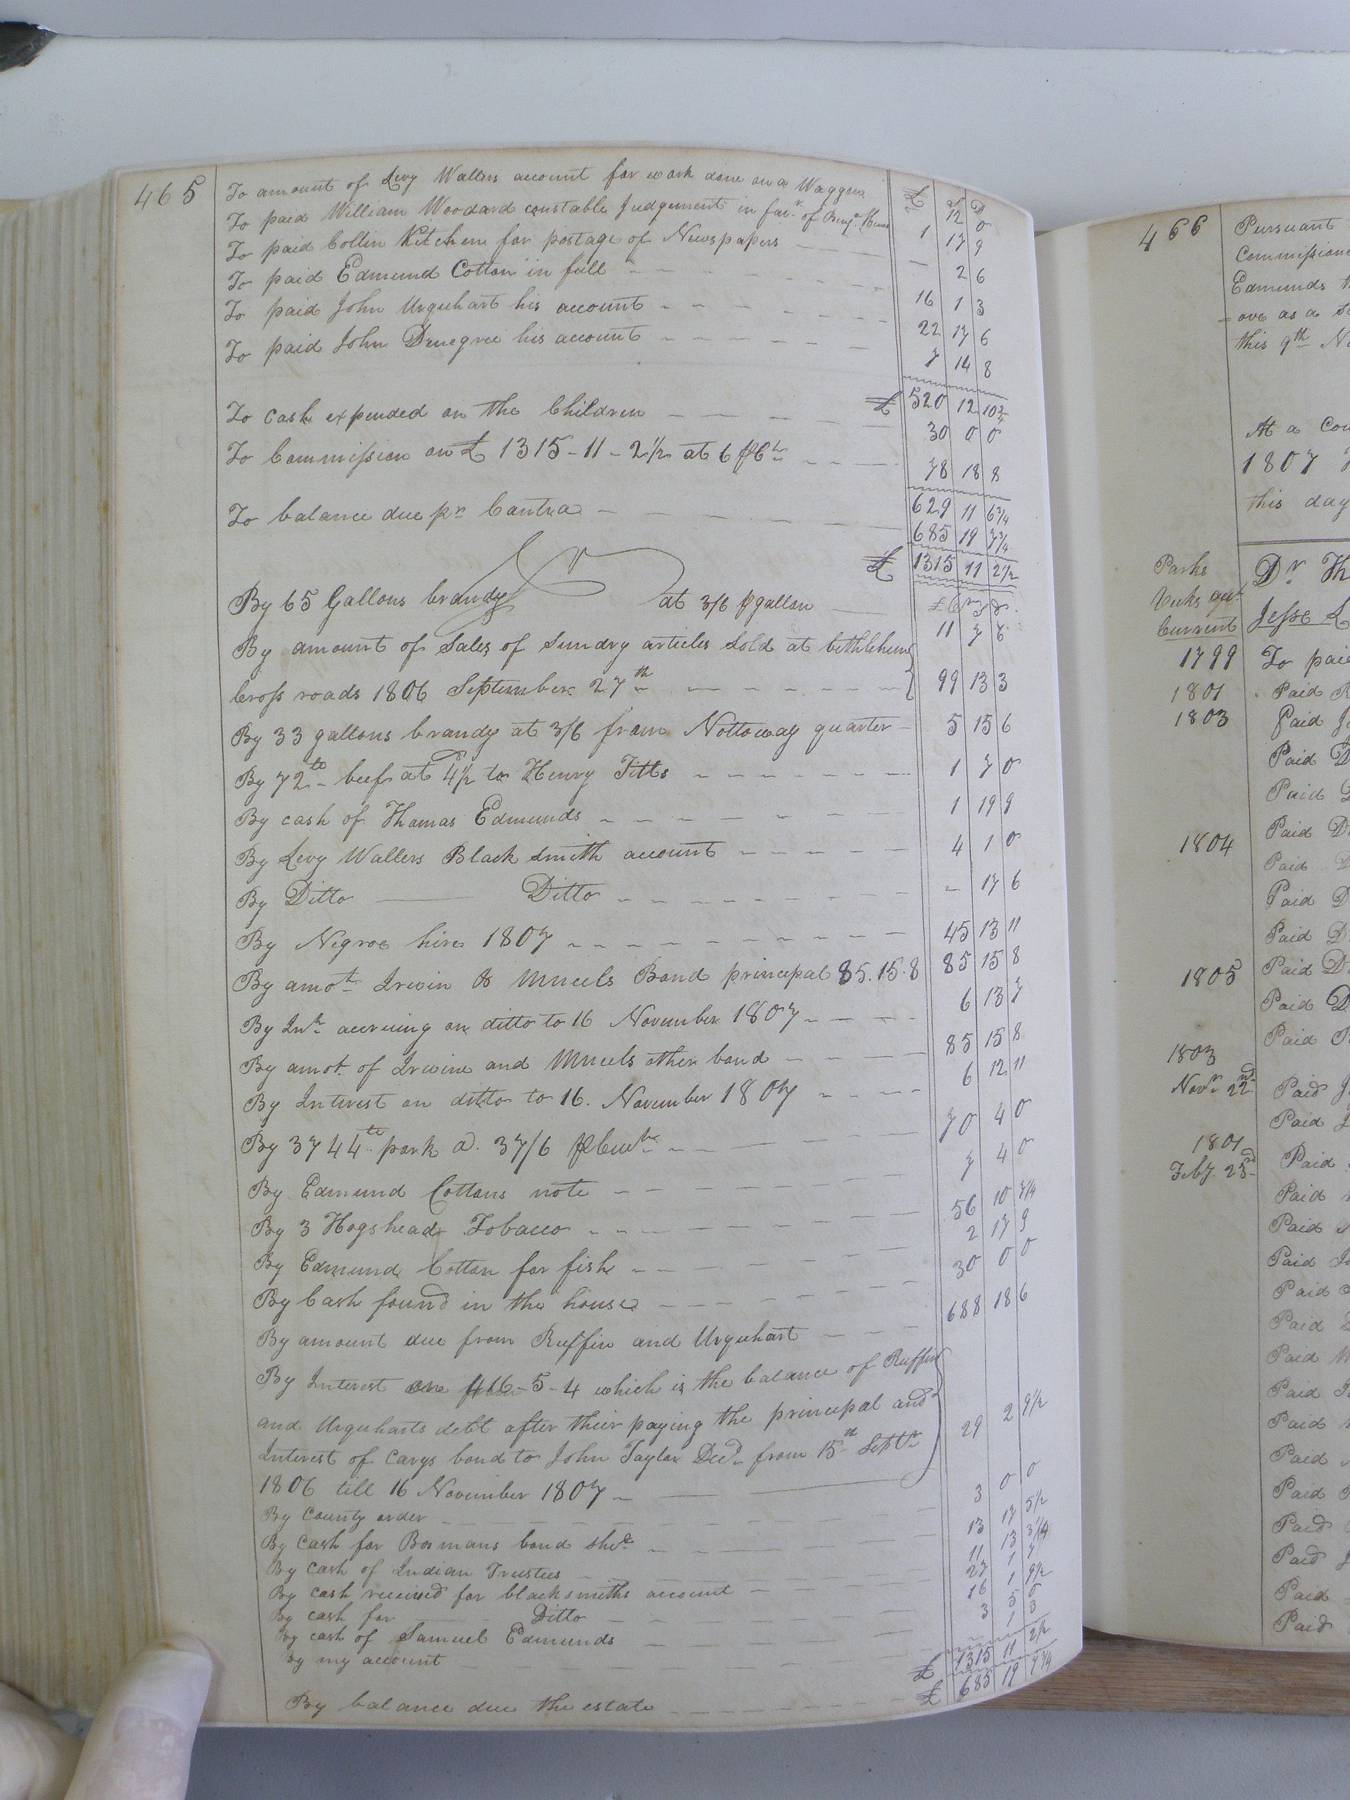 465
£ S D
To amount of Levy Walters account for work done on a Waggon 12 0
To paid William Woodard constable Judgement in favr. of Benja. 1 17 9
To paid Collin Kitchen for postage of Newspapers — 2 6
To paid Edmund Cotton in full 16 1 3
To paid John Urquhart his account 22 17 6
To paid John Denegree his account 7 14 8
£ 520 12 10 3/4
To cash expended on the Children 30 0 0
To Commission on £ 1315-11-2 1/2 at 6 78 18 8
629 11 6 3/4
To balance due pr Contra 685 19 7 3/4
£ 1315 11 2 1/2
Cr
By 65 Gallons brandy at 3/6 gallon 11 7 6
By amount of Sales of sundry articles sold at bethlehem
Cross roads 1806 September 27th 99 13 3
By 33 gallons brandy at 3/6 from Nottoway quarter 5 15 6
By 72 lb beef at 4 1/2 to Henry Titts 1 7 0
By cash of Thomas Edmunds 1 19 9
By Levy Walters Black smith account 4 1 0
By Ditto Ditto — 17 6
By Negroe hire 1807 45 13 11
By amot. Irwin & Mneels Bond principal 85.15.8 85 15 8
By Int. accruing on ditto to 16 November 1807 6 13 7
By amot. of Irwine and Mneels other bond 85 15 8
By Interest on ditto to 16. November 1807 6 12 11
By 3744 lb. pork a. 37/6 70 4 0
By Edmund Cottons note 7 4 0
By 3 Hogsheads Tobacco 56 10 7/4
By Edmund Cotton for fish 2 17 9
By Cash found in the house 30 0 0
By amount due from Ruffin and Urquhart 688 18 6
By Interest on 416-5-4 which is the balance of Ruffin
and Urquharts debt after their paying the principal and
Interest of Carys bond to John Taylor Decd. from 15th Septr
1806 till 16 November 1807 29 2 9 1/2
By County order 3 0 0
By Cash for Bowmans bond 13 17 5 1/2
By Cash of Indian Trustees 11 13 3 1/4
By cash received for blacksmiths account 27 1 7
By cash for Ditto 16 1 9 1/2
By cash of Samuel Edmunds 3 5 5
By my account — 1 3
£ 1315 11 2 1/2
By balance due the estate £ 685 19 7 3/4
466
Pursuant
Commissione
Edmunds
ove as a
this 9th
At a Cou
1807
this day
Dr
Jesse L
Current
1799 To paid
1801 Paid
1803 Paid
Paid
Paid
1804 Paid
Paid
Paid
Paid
1805 Paid
Paid
Paid
1803
Novr. 22nd Paid
Paid
1801
Feby. 23d Paid
Paid
Paid
Paid
Paid
Paid
Paid
Paid
Paid
Paid
Paid
Paid
Paid
Paid
Paid